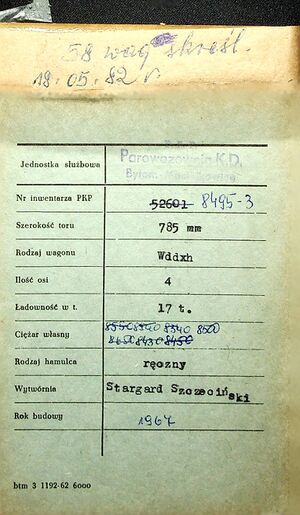 58 wag skreśl.
18.05.82 r
Jednostka służbowa
Parowozownia K.D.
Nr inwentarza PKP 52601 8495-3
Szerokość toru 785 mm
Rodzaj wagonu Wddxh
Ilość osi 4
Ładowność w t. 17 t.
Ciężar własny 8550 8540 8340 8500
8650 8430 8450
Rodzaj hamulca ręczny
Wytwórnia Stargard Szczeciński
Rok budowy 1967
btm 3 1192-62 6000